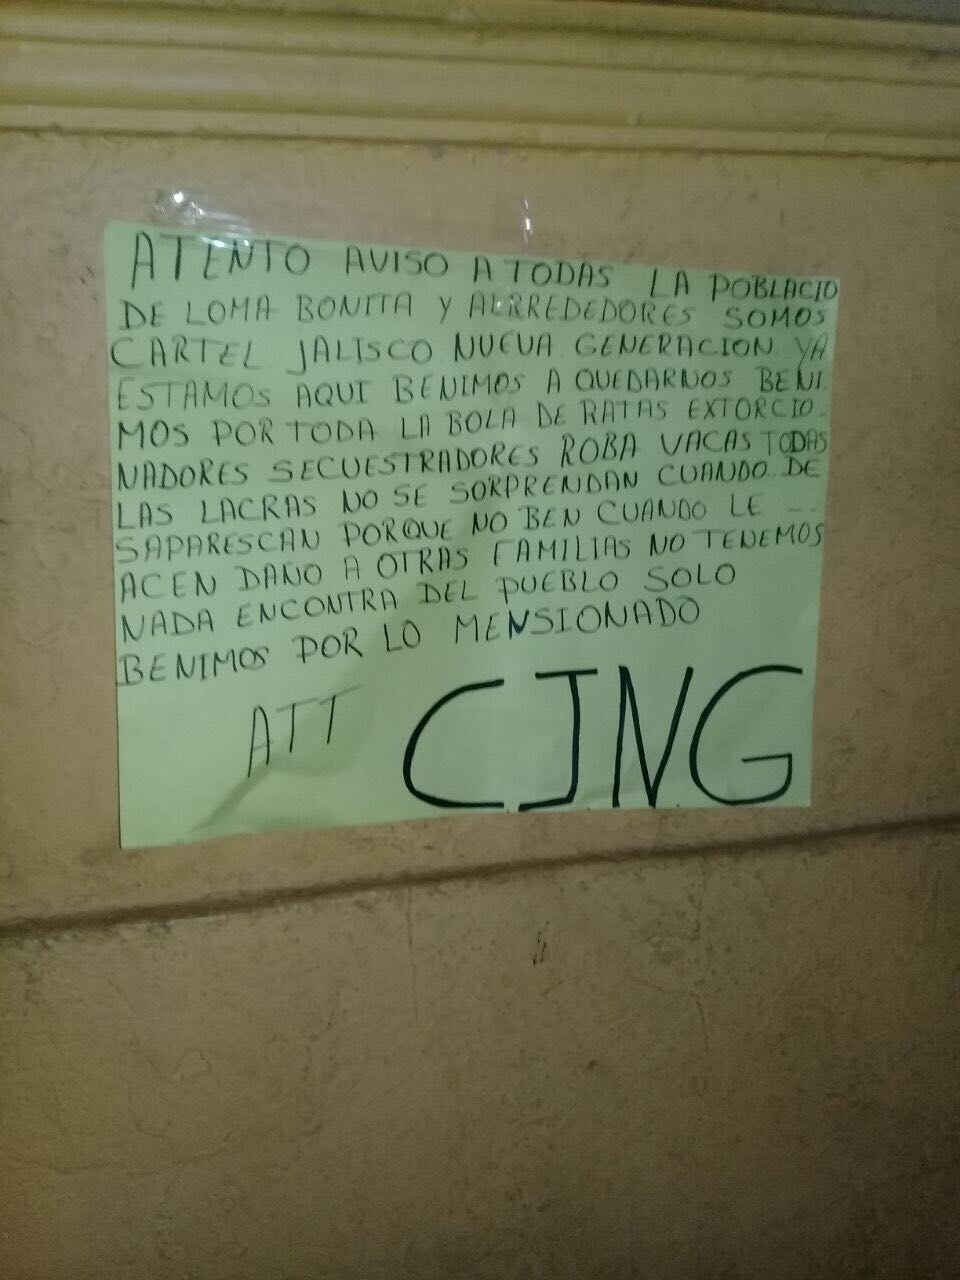 ATENTO AVISO A TODAS LA POBLACIO
DE LOMA BONITA Y ALRREDEDORES SOMOS
CARTEL JALISCO NUEVA GENERACION YA
ESTAMOS AQUI BENIMOS A QUEDARNOS BENI
MOS POR TODA LA BOLA DE RATAS EXTORCIO-
NADORES SECUESTRADORES ROBA VACAS TODAS
LAS LACRAS NO SE SORPRENDAN CUANDO DE
SAPARESCAN PORQUE NO BEN CUANDO LE --
ACEN DANO A OTRAS FAMILIAS NO TENEMOS
NADA ENCONTRA DEL PUEBLO SOLO
BENIMOS POR LO MENSIONADO
ATT CJNG